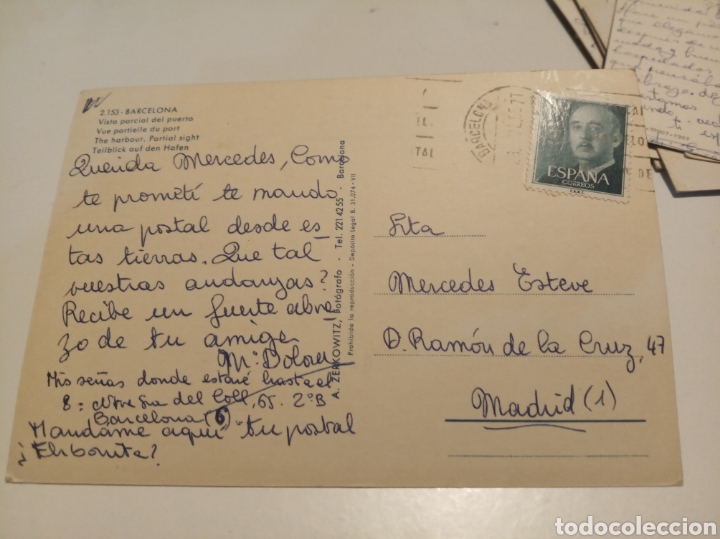 2.153 - BARCELONA
Vista parcial del puerto
Vue partielle du port
The harbour. Partial sight
Teilblick auf den Hafen
Querida Mercedes, Como
te prometí te mando
una postal desde es-
tas tierras. Que tal
vuestras andanzas?
Recibe un fuerte abra-
zo de tu amiga
Mª Dolores
Mis señas donde estaré hasta el
8: Ntra Sra del Coll, 65. 2º B
Barcelona (6)
Mandame aquí tu postal
¡Eh bonita?
A. ZERKOWITZ, Fotógrafo - Tel. 221 42 55 - Barcelona
Prohibida la reproducción - Depósito Legal B. 31.074 - VII
BARCELONA
ESPAÑA
CORREOS
Srta
Mercedes Esteve
D. Ramón de la Cruz, 47
Madrid (1)
todocoleccion